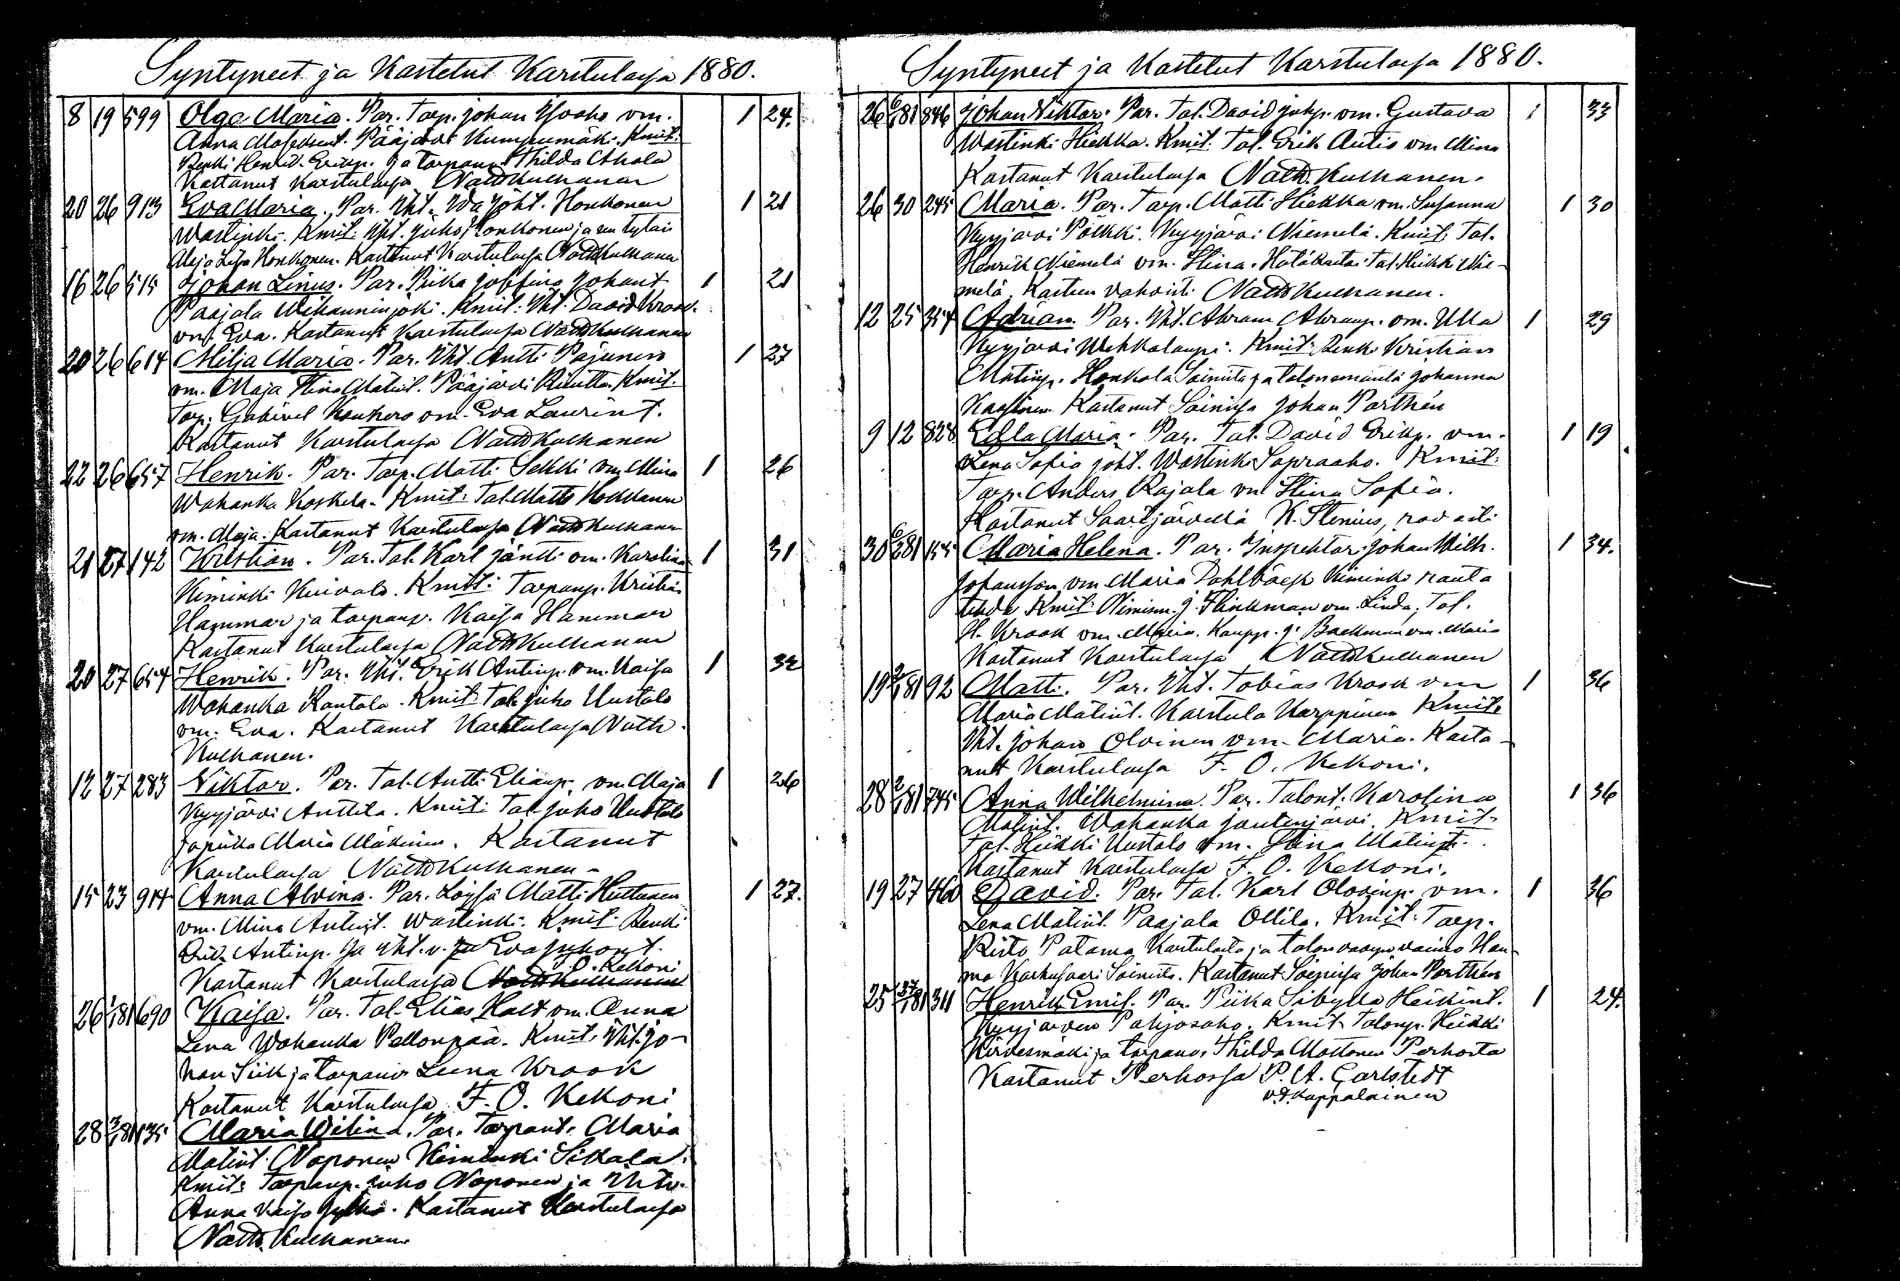 Syntyneet ja Kastetut Karstulassa 1880.
8 19 599 Olga Maria. Par. Torp. Johan Ahoaho vm. 1 24.
Anna Pääjärvi Kumpumäki. Kmit:
Renki Henrik Erikp. ja torpanp. Thilda
Kastanut Karstulassa Nath Kulhanen
20 26 913 Eva Maria. Par. Iht. Ida Joht. Honkonen 1 21
Wastinki. Kmit: Iht. Juho Honkonen ja sen tytär
Honkonen. Kastanut Karstulassa Nath Kulhanen
16 26 515 Johan Linus. Par. Piika Josefina Johant. 1 21
Paajala Wihanninjoki. Kmit: Iht. David Krook.
vm. Eva. Kastanut Karstulassa Nath Kulhanen
20 26 614 Milja Maria. Par. Iht. Antti Pajunen 1 27
vm. Maja Stina Matint. Pääjärvi Rinutta. Kmit.
Torp. Gabriel vm. Eva Laurint.
Kastanut Karstulassa Nath Kulhanen
22 26 657 Henrik. Par. Torp. Matti Sekki vm. Mina 1 26
Wahanka Koskela. Kmit: Tal. Matts
vm. Maja. Kastanut Karstulassa Nath Kulhanen
21 27 142 Kristian. Par. Tal. Karl Jäntti vm. Karolina 1 31
Kiminki Kuivala. Kmit: Torpanp. Kristian
Hammar ja torpanp. Kaisa Hammar
Kastanut Karstulassa Nath Kulhanen
20 27 654 Henrik. Par. Iht. Erik Antinp. vm. Kaisa 1 32
Wahanka Rantala. Kmit: Tal. Juho Uustalo
vm. Eva. Kastanut Karstulassa Nath.
Kulhanen.
12 27 283 Viktor. Par. Tal. Antti Eliasp. vm. Maja 1 26
Kyyjärvi Anttila. Kmit: Tal. Juho Uustalo
ja piika Maria Mäkinen. Kastanut
Karstulassa Nath Kulhanen.
15 23 914 Anna Alvina. Par. Loissa Matti Huttunen 1 27.
vm. Mina Antint. Wastinki. Kmit: Renki
Antinp. ja Iht. v. Eva Juhont.
F. O. Kekoni
Kastanut Karstulassa Nath Kulhanen
26 1/1 81 690 Kaisa. Par. Tal. Elias Halt vm. Anna
Lena Wahanka Pellonpää. Kmit: Iht. Jo-
han Siik ja torpanv. Leena Krook
Kastanut Karstulassa F. O. Kekoni
28 3/1 81 135 Maria Wilina. Par. Torpant. Maria
Matint. Noponen Kiminki Sikala.
Kmit: Torpanp. Juho Noponen ja Iht. v.
Anna Kaisa Kastanut Karstulassa
Nath. Kulhanen.
Syntyneet ja Kastetut Karstulassa 1880.
26 6/1 81 846 Johan Viktor. Par. Tal. David Juhp. vm. Gustava 1 33
Wastinki Hiekka. Kmit: Tal. Erik Autio vm. Mina
Kastanut Karstulassa Nath. Kulhanen.
26 30 245 Maria. Par. Torp. Matti Hiekka vm. Susanna 1 30
Kyyjärvi Pölkki. Kyyjärvi Niemelä. Kmit: Tal.
Henrik Niemelä vm. Stina. Hätäkaste: Tal. Heikki Nie-
melä. Kasteen vahvisti Nath Kulhanen.
12 25 354 Adrian. Par. Iht. Abram Abramp. vm. Ulla 1 29
Kyyjärvi Wehkalampi. Kmit: Renki Kristian
Matinp. Honkala Soinista ja talonemäntä Johanna
Kastanut Soinissa Johan Parthén
9 12 828 Edla Maria. Par. Tal. David Erikp. vm. 1 19
Lena Sofia Joht. Wastinki Sopraaho. Kmit:
Torp. Anders Rajala vm. Stina Sofia.
Kastanut Saarijärvellä K. Stenius, rovasti
30 6/2 81 155 Maria Helena. Par. Inspektor Johan Wilh. 1 34.
Johansson vm. Maria Dahlbäck Kiminki rauta
tehdas Kmit: Nimism. J. Flinkman vm. Linda, Tal.
H. Krook vm. Maria. Kaupp. J. Backman vm. Maria
Kastanut Karstulassa Nath Kulhanen
19 2/1 81 92 Matti. Par. Iht. Tobias Krook vm 1 36
Maria Matint. Karstula Karppinen Kmit:
Iht. Johan Olvinen vm. Maria. Kasta-
nut Karstulassa F. O. Kekoni.
28 2/1 81 745 Anna Wilhelmina. Par. Talont. Karolina 1 36
Matint. Wahanka Jautenjärvi. Kmit:
Tal. Heikki Uustalo vm. Stina Matint.
Kastanut Karstulassa F. O. Kekoni.
19 27 460 David. Par. Tal. Karl Olovinp. vm. 1 36
Lena Matint. Paajala Ollila. Kmit: Torp.
Risto Patama Karstulasta ja talon vaimo Han-
na Karhusaari Soinista. Kastanut Soinissa Johan Parthén
25 27/1 81 311 Henrik Emil. Par. Piika Sibylla Heikint. 1 24.
Kyyjärven Pohjosaho. Kmit: Talonp. Heikki
Kirvesmäki ja torpanv. Thilda Mottonen Perhosta
Kastanut Perhossa P. A. Carlstedt
v.t. kappalainen